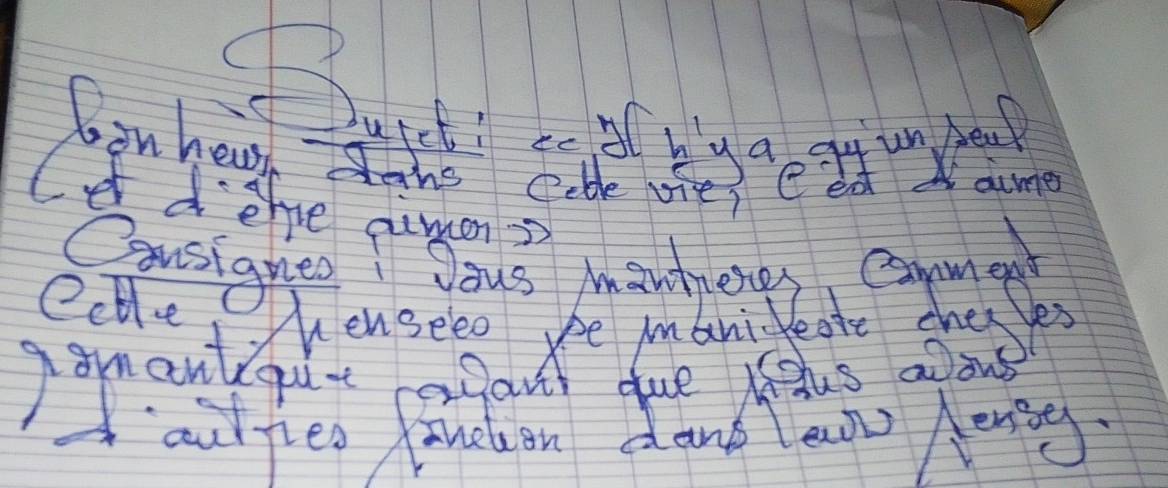 Sujet : << Il n'y a qu'un seul
bonheur dans cette vie, c'est d'aimer
et d'être aimer >>
Consignes : Vous montrerez comment
cette pensées se manifeste chez les
romantique avant que nous avons
d'autres fonction dans leur pensey.